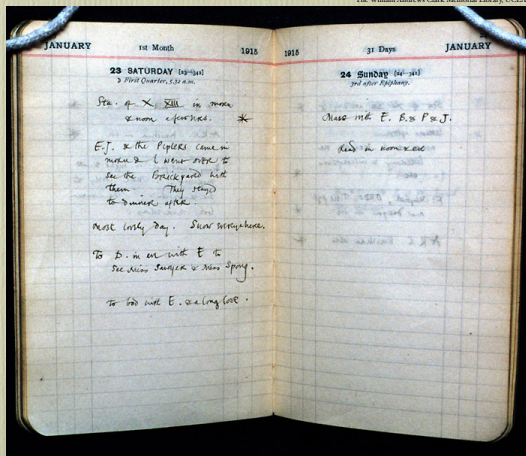 The William Andrews Clark Memorial Library, UCLA
JANUARY 1st Month 1915
23 SATURDAY [23—342]
☽ First Quarter, 5.32 a.m.
Sta. of X, XIII in morn
& noon afternoon. *
E.J. & the Peplers came in
morn & I went over to
see the Brickyard with
them They stayed
to dinner after.
Most lovely day. Snow everywhere.
To D. in ev. with E to
see Miss Sawyer & Miss Spong.
to bed with E. & a long love.
1915 31 Days JANUARY
24 Sunday [24—341]
3rd after Epiphany.
Mass with E. B. & P & J.